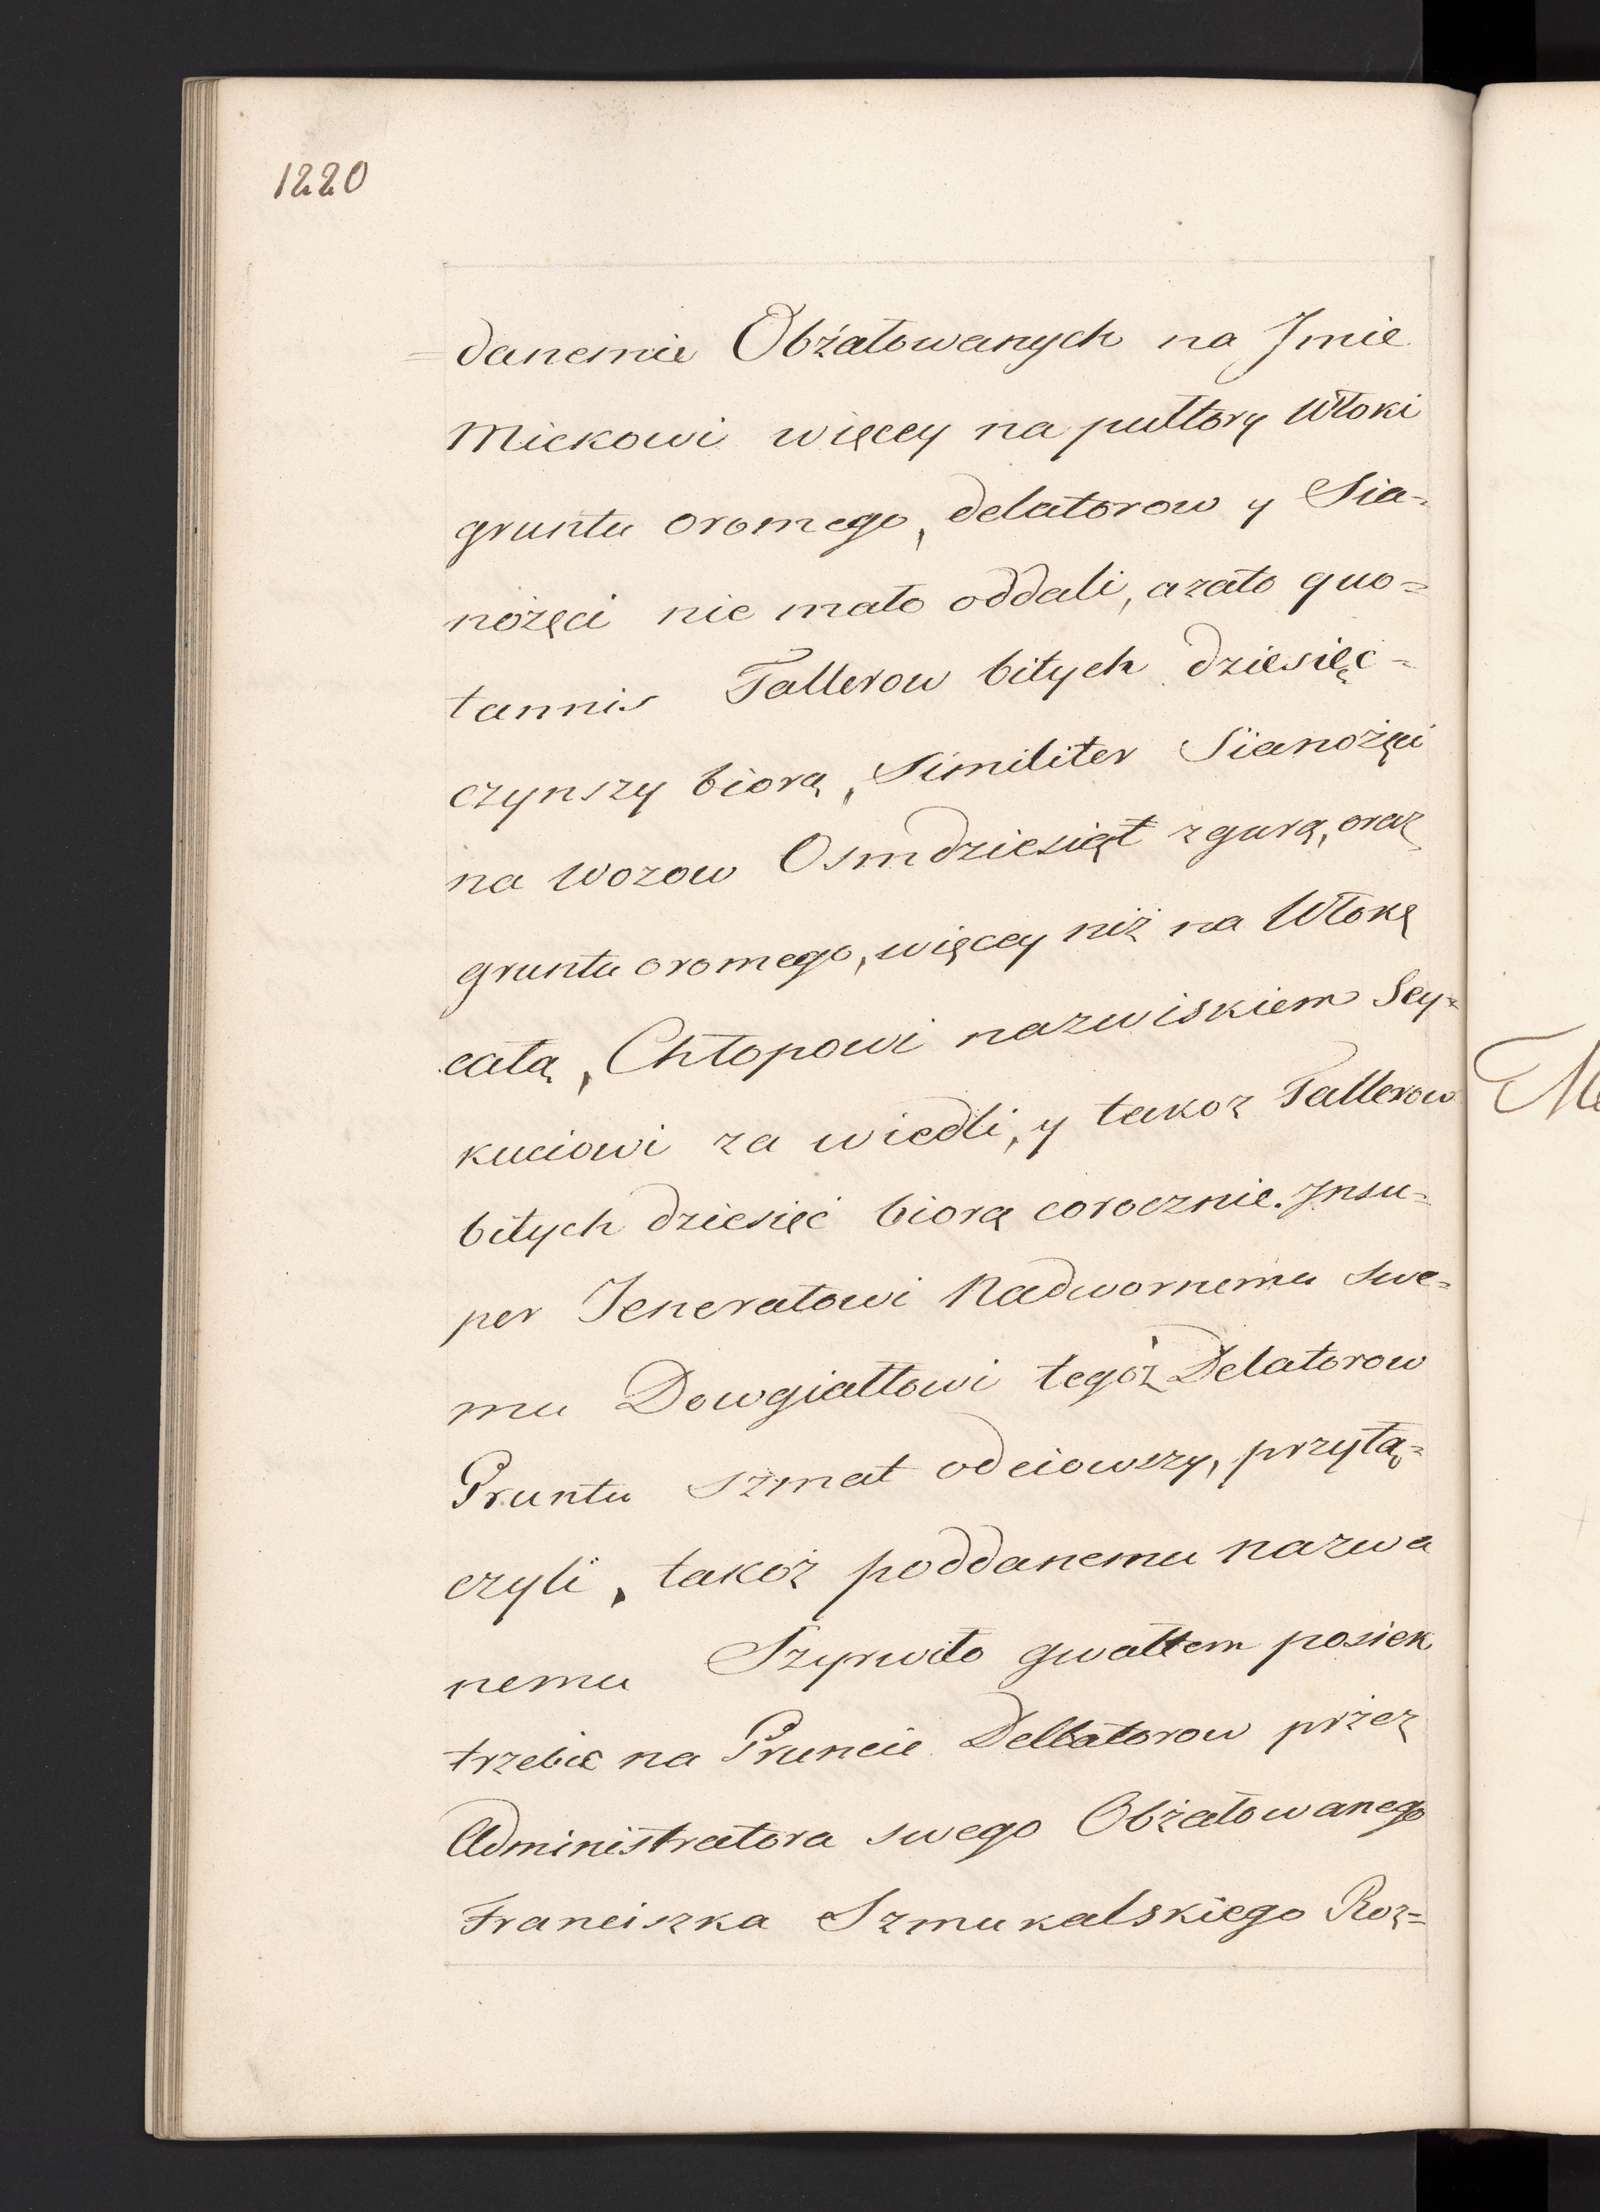 1220
=danemu Obżałowanych na Jmie
Mickowi więcey na pułtory Włoki
gruntu oromego, delatorow y Sia-
nożęci nie mało oddali, azato quo-
tannis Tallerow bitych dziesięć-
czynszy biorą, Similiter Sianożęci
na wozow Osmdziesiąt zgurą, oraz
gruntu oromego, więcey niż na Włokę
całą, Chłopowi nazwiskiem Sey-
kuciowi za wiedli, y takoż Tallerow
bitych dziesięć biorą corocznie. Jnsu-
per Jenerałowi Nadwornemu swe-
mu Dowgiałłowi tegoż Delatorow
Gruntu szmat odciowszy, przyłą-
czyli, takoż poddanemu nazwa
nemu Szyrwiło gwałtem posiek
trzebić na Gruncie Dellatorow przez
Administratora swego Obżałowanego
Franciszka Szmukalskiego Roz=